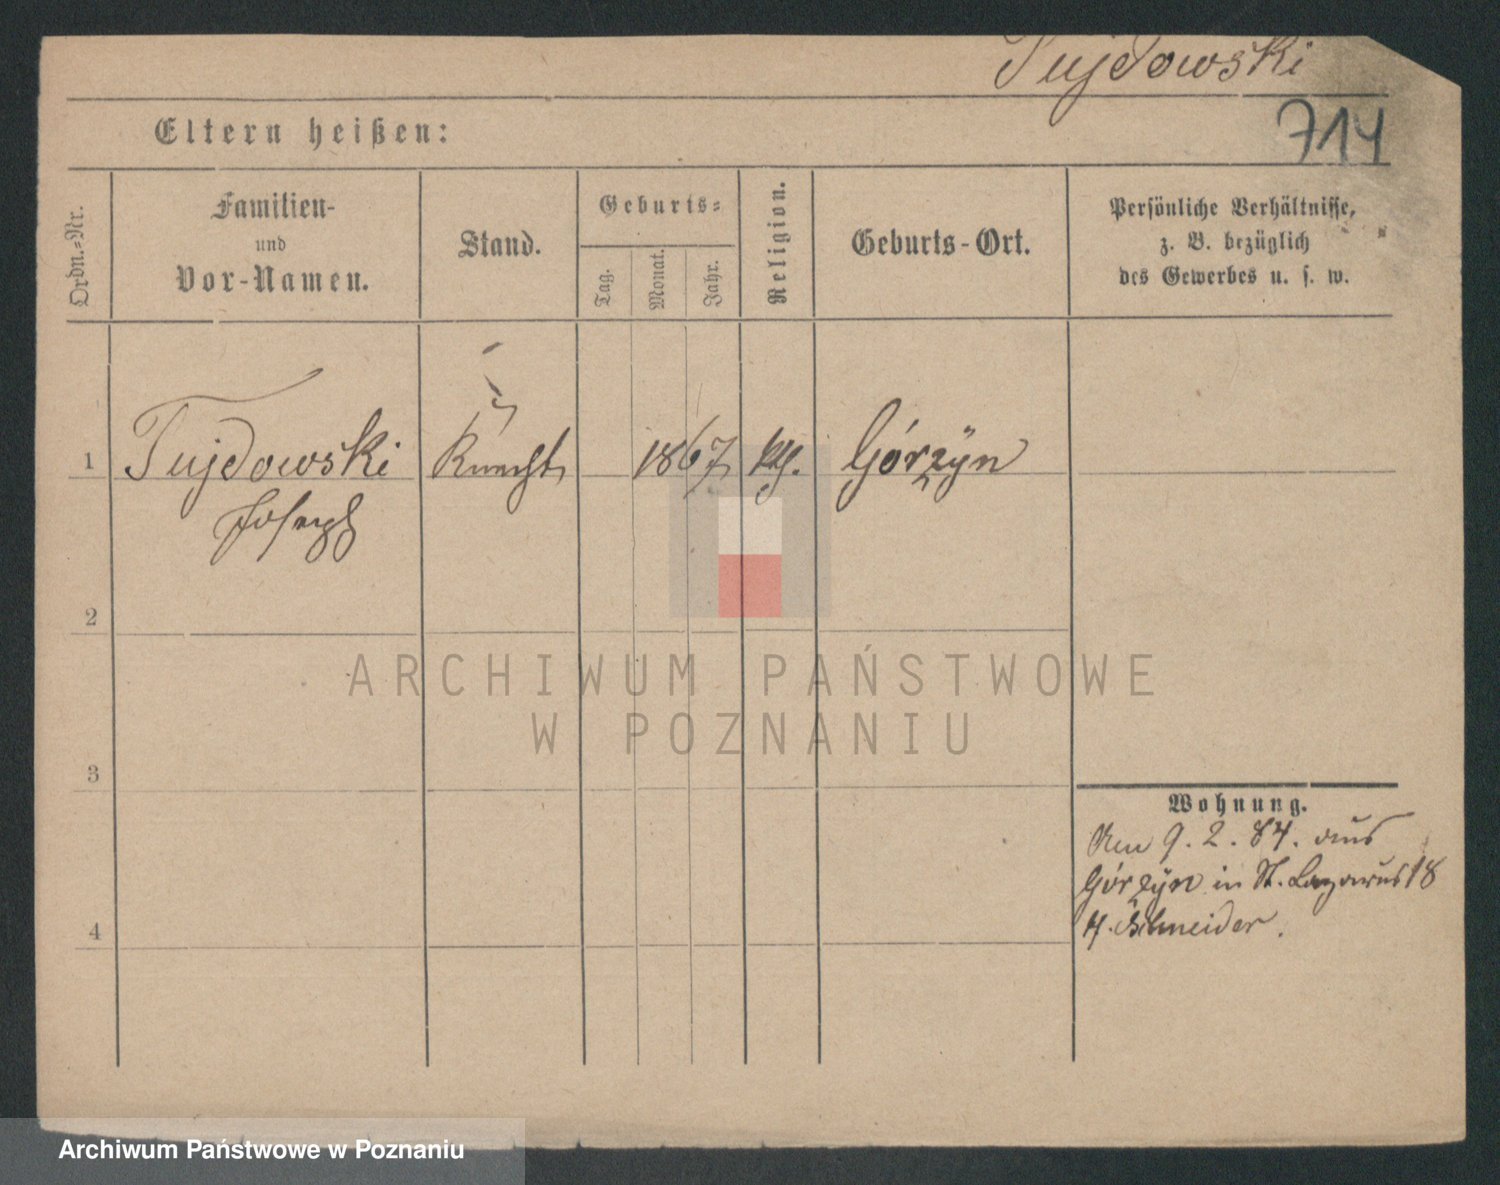 Tujdowski
Eltern heißen:
714
Ordn.-Nr.
Familien-
und
Vor-Namen.
Stand.
Geburts-
Tag.
Monat.
Jahr.
Religion.
Geburts-Ort.
Persönliche Verhältnisse,
z. B. bezüglich
des Gewerbes u. s. w.
1 Tujdowski Knecht 1867 kth. Górzyn
Joseph
2
3
4
Wohnung.
Am 9. 2. 84. aus
Górzyn in St. Lazarus 18
b. Schneider.
ARCHIWUM PAŃSTWOWE
W POZNANIU
Archiwum Państwowe w Poznaniu